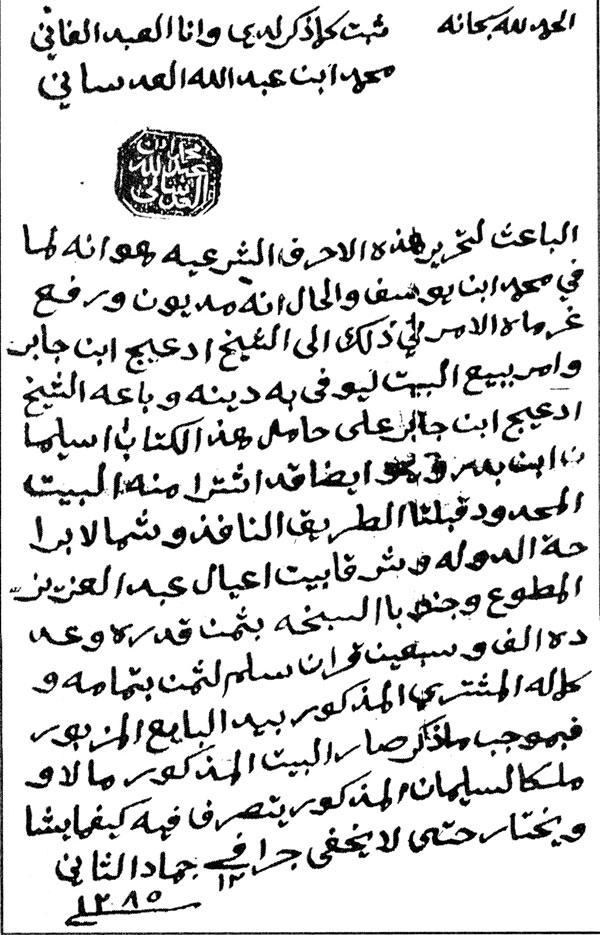 الحمد لله سبحانه
ثبت كلما ذكر لدي وانا العبد الفاني
محمد ابن عبد الله العدساني
محمد ابن
عبد الله
العدساني
الباعث لتحرير هذه الاحرف الشرعيه هوانه لما
في محمد ابن يوسف والحال انه مديون ورفع
غرماه الامر في ذلك الى الشيخ ادعيج ابن جابر
وامر ببيع البيت ليوفى به دينه وباعه الشيخ
ادعيج ابن جابر على حامل هذ الكتاب اسليما
ن ابن بدر وهو ايضا قد اشترا منه البيت
المحدود قبلتا الطريق النافذ وشمالا برا
حة الدوله وشرقا بيت اعيال عبد العزيز
المطوع وجنوبا السبخه بثمن قدره وعد
ده الف وسبعين قران سلم لثمن بتمامه و
كماله المشتري المذكور بيد البايع المزبور
فبموجب ماذكر صار البيت المذكور مالا و
ملكا لسليمان المذكور يتصرف فيه كيفما يشا
ويختار حتى لا يخفى جرا في جماد الثاني
١٢
١٢٨٥